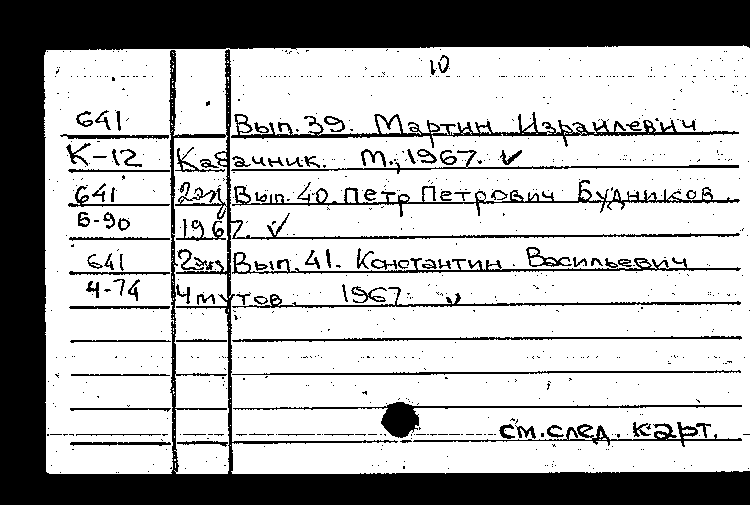 10
641 Вып. 39. Мартин Израилевич
К-12 Кабачник. М., 1967. ✓
641 2экз Вып. 40. Петр Петрович Будников.
Б-90 1967. ✓
641 2экз Вып. 41. Константин Васильевич
Ч-74 Чмутов. 1967
см. след. карт.